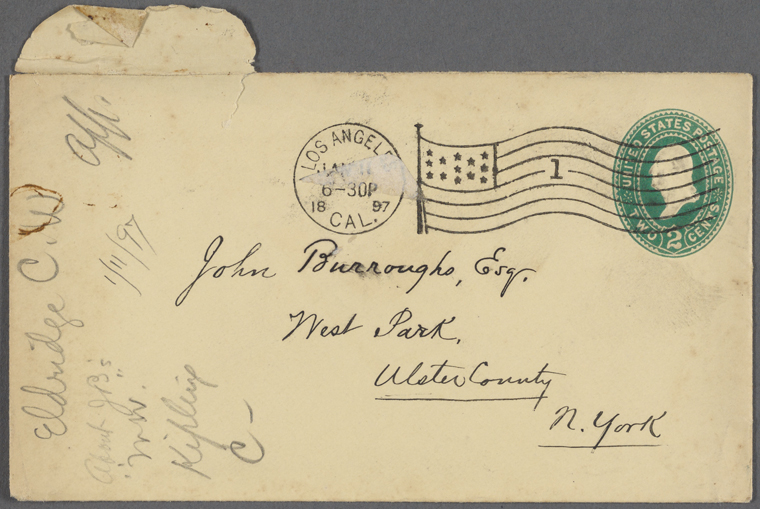 LOS ANGELES
6-30P
18 97
CAL.
1
UNITED STATES POSTAGE
TWO 2 CENTS
John Burroughs, Esq.
West Park,
Ulster County
N. York
Eldridge C.
1/11/97
About J.B.s
Kipling
C-